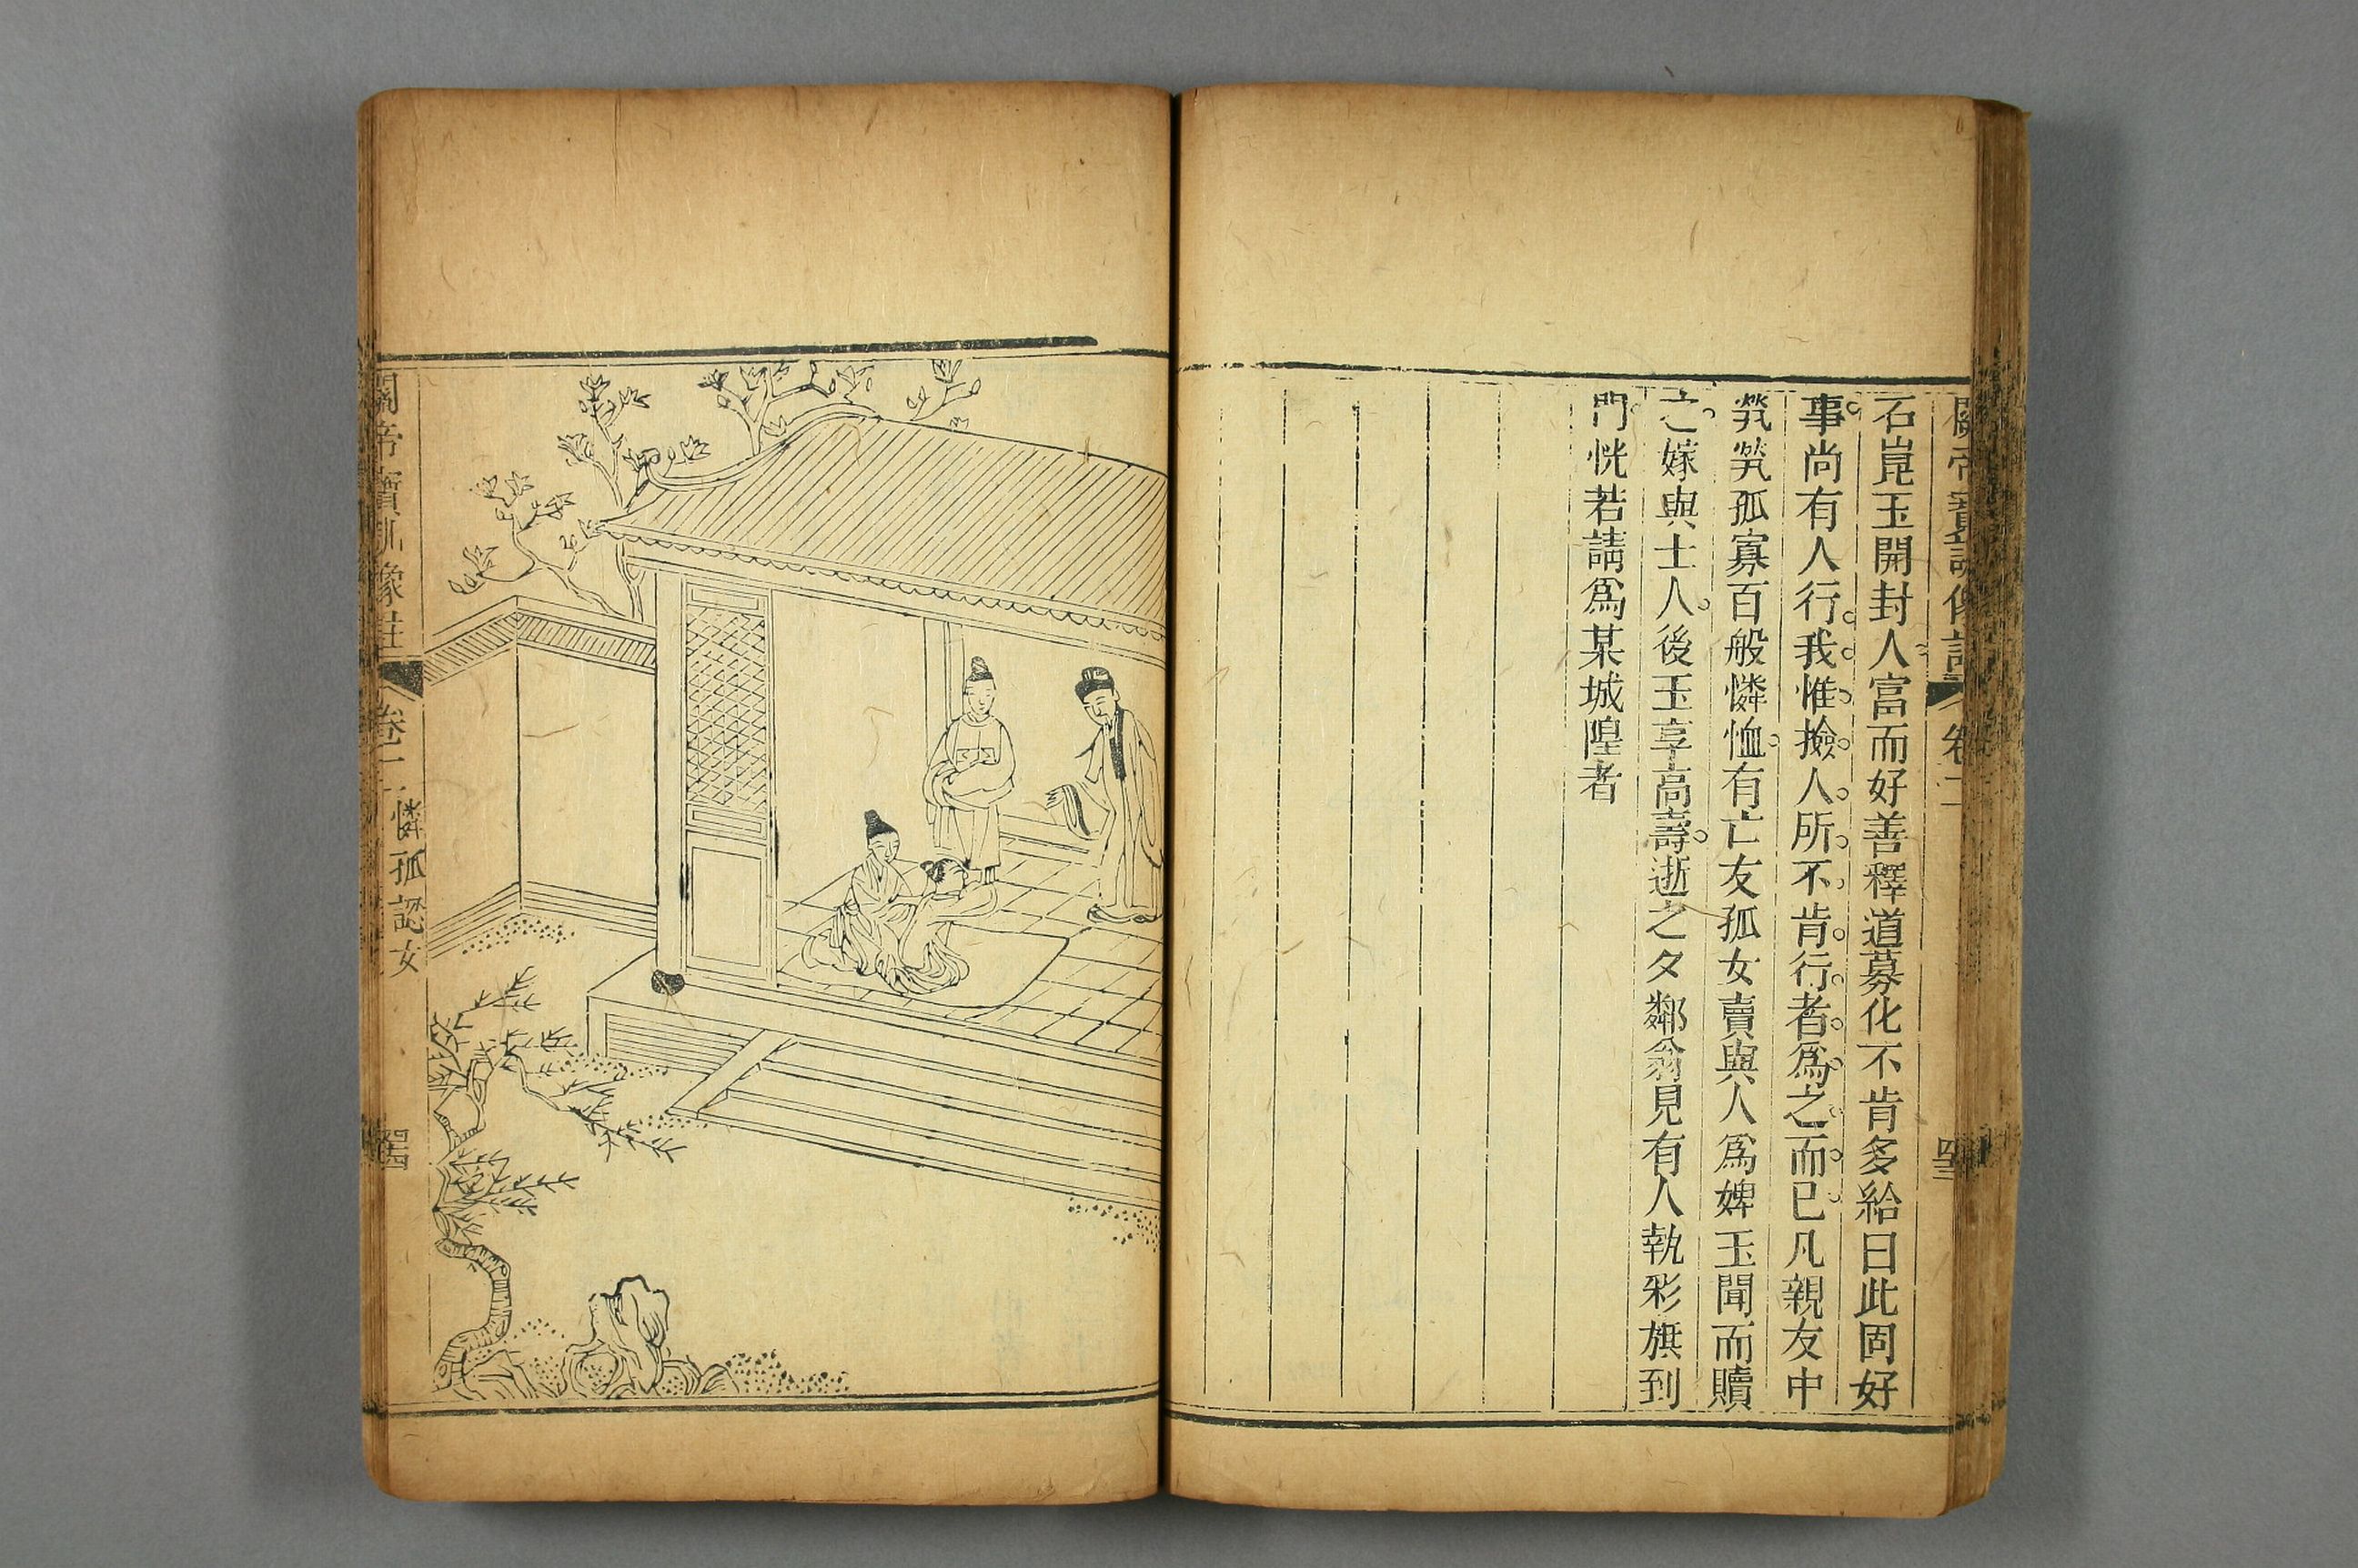 關帝寶訓像註 卷二 四三
石崑玉開封人富而好善釋道募化不肯多給曰此固好
事尚有人行我惟撿人所不肯行者爲之而已凡親友中
煢煢孤寡百般憐恤有亡友孤女賣與人爲婢玉聞而贖
之嫁與士人後玉享高壽逝之夕鄰翁見有人執彩旗到
門恍若請爲某城隍者
關帝寶訓像註 卷二 憐孤認女 四四